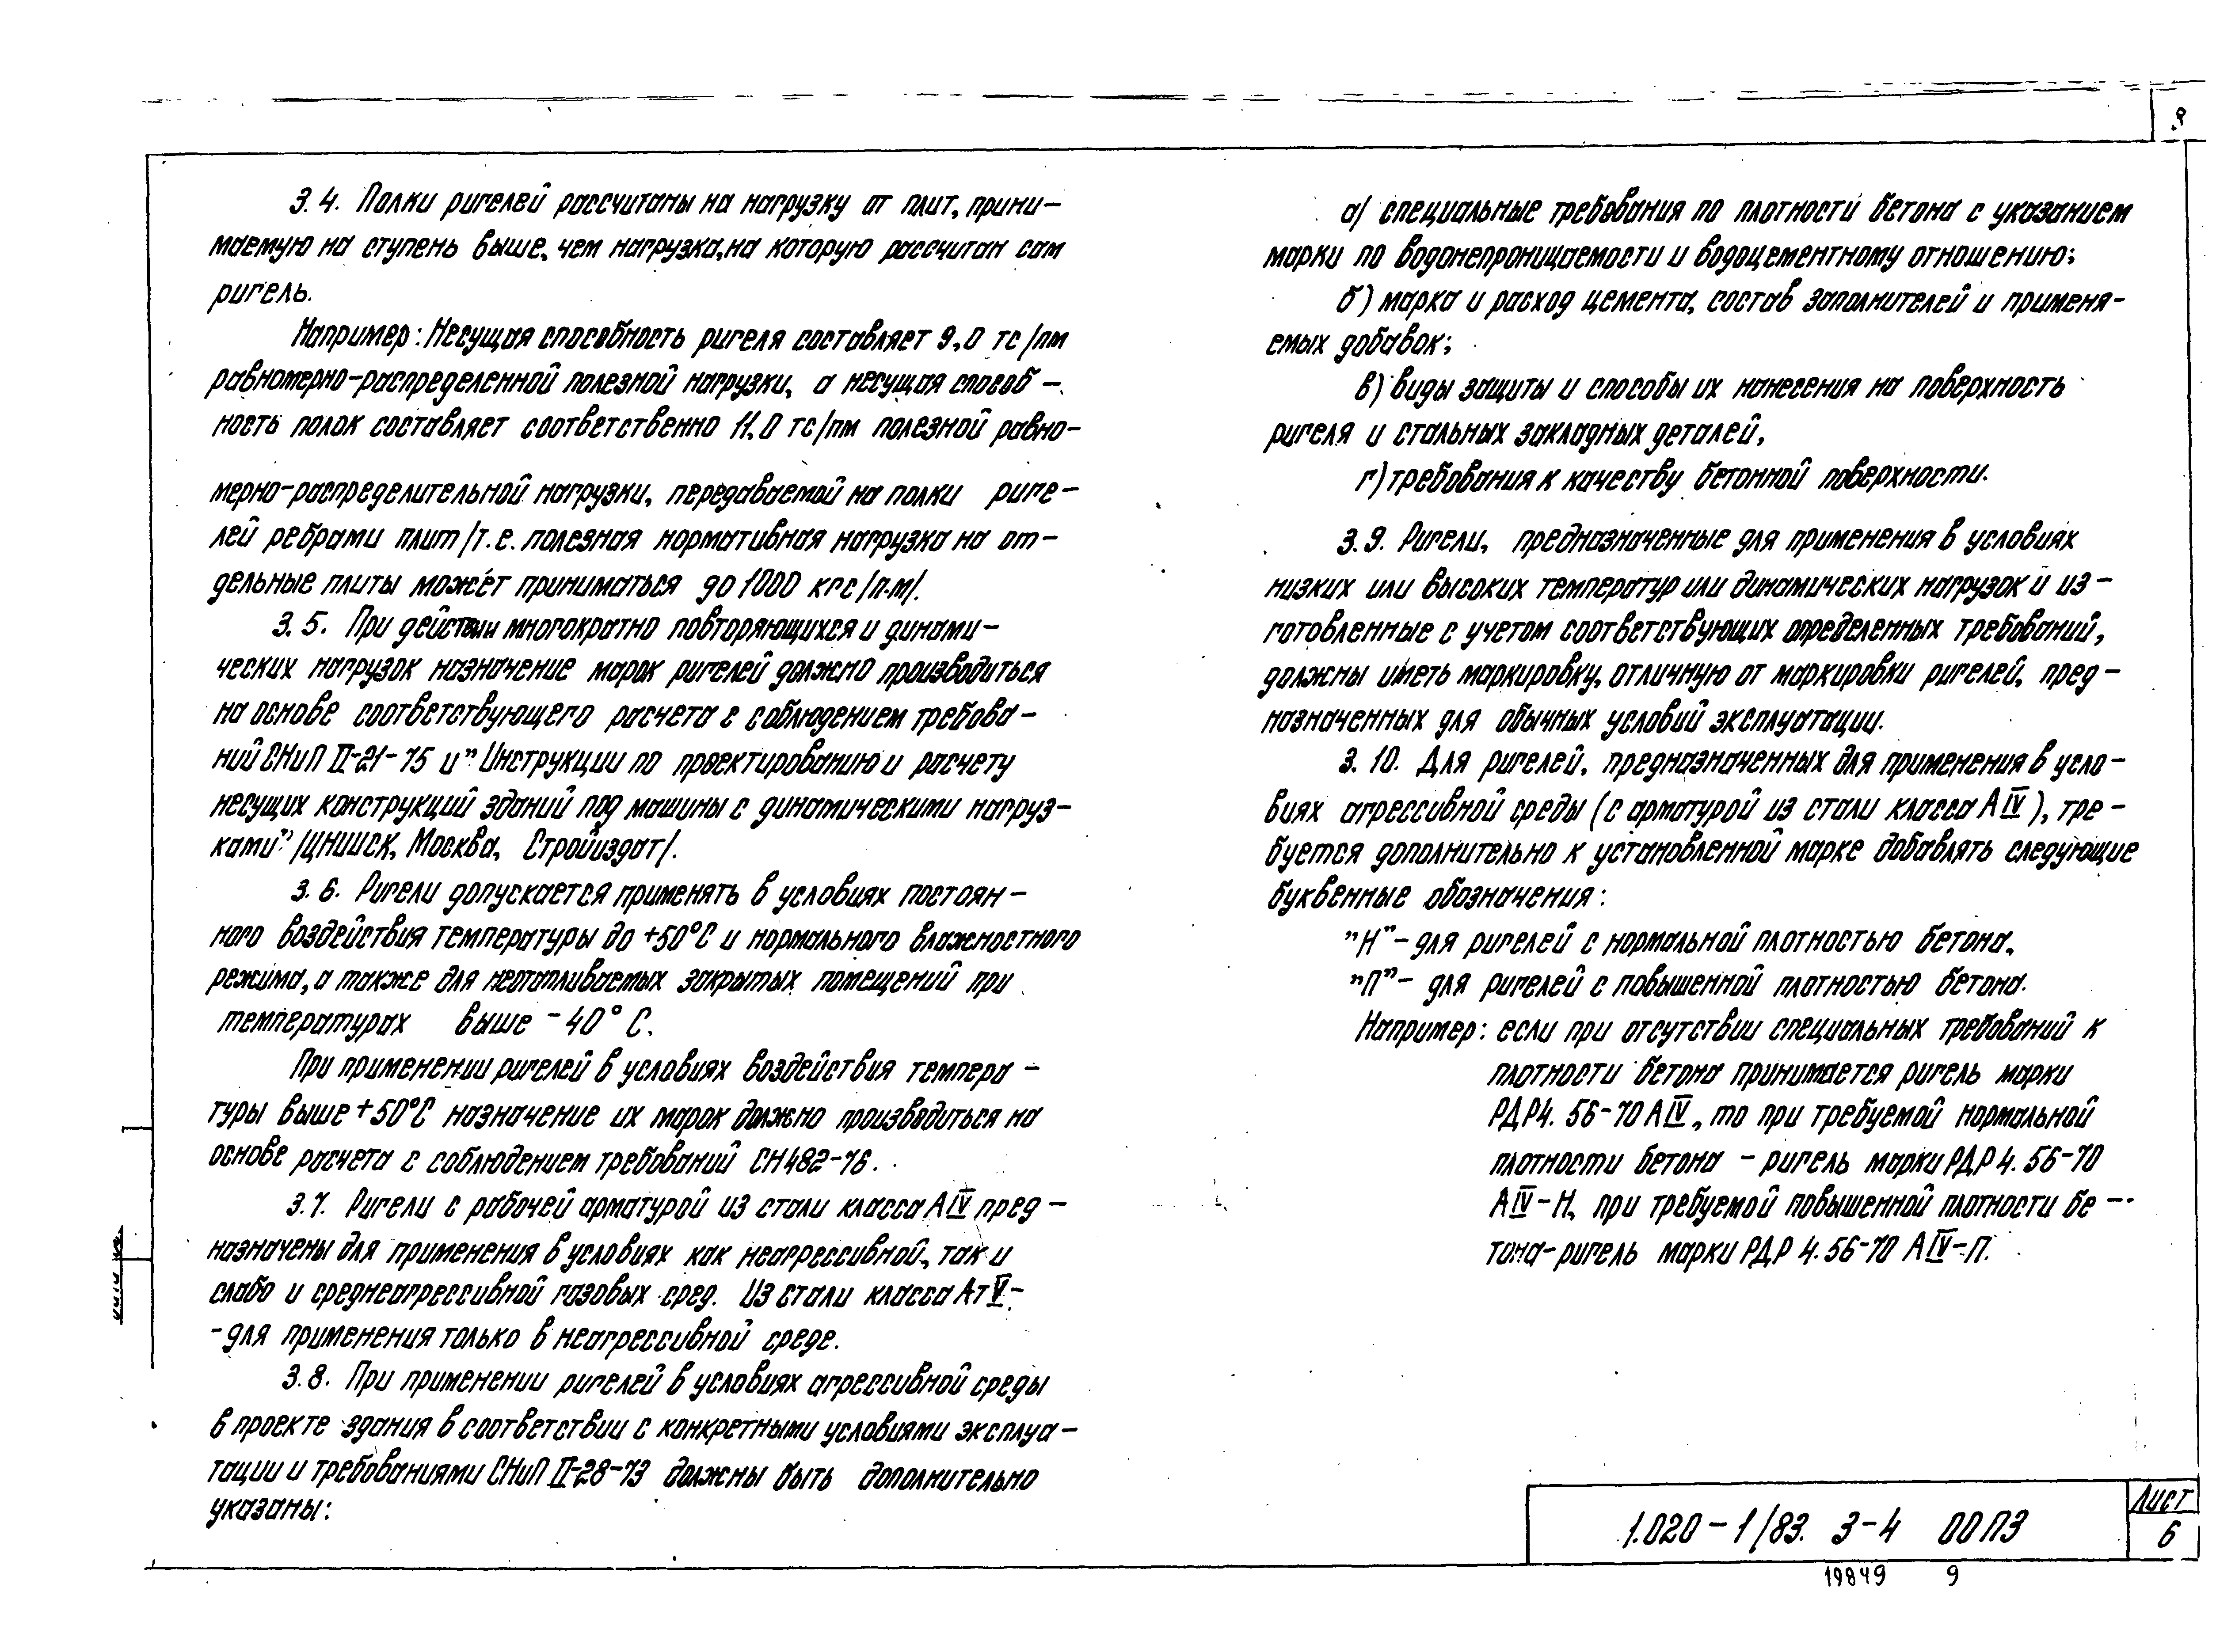 8
3.4. Полки ригелей рассчитаны на нагрузку от плит, прини-
маемую на ступень выше, чем нагрузка, на которую рассчитан сам
ригель.
Например: Несущая способность ригеля составляет 9,0 тс/пм
равномерно-распределенной полезной нагрузки, а несущая способ-
ность полок составляет соответственно 11,0 тс/пм полезной равно-
мерно-распределительной нагрузки, передаваемой на полки риге-
лей ребрами плит /т.е. полезная нормативная нагрузка на от-
дельные плиты может приниматься до 1000 кгс/п.м/.
3.5. При действии многократно повторяющихся и динами-
ческих нагрузок назначение марок ригелей должно производиться
на основе соответствующего расчета с соблюдением требова-
ний СНиП II-21-75 и "Инструкции по проектированию и расчету
несущих конструкций зданий под машины с динамическими нагруз-
ками" /ЦНИИСК, Москва, Стройиздат/.
3.6. Ригели допускается применять в условиях постоян-
ного воздействия температуры до +50°С и нормального влажностного
режима, а также для неотапливаемых закрытых помещений при
температурах выше -40°С.
При применении ригелей в условиях воздействия темпера-
туры выше +50°С назначение их марок должно производиться на
основе расчета с соблюдением требований СН482-76.
3.7. Ригели с рабочей арматурой из стали класса АIV пред-
назначены для применения в условиях как неагрессивной, так и
слабо и среднеагрессивной газовых сред. Из стали класса АтV-
-для применения только в неагрессивной среде.
3.8. При применении ригелей в условиях агрессивной среды
в проекте здания в соответствии с конкретными условиями эксплуа-
тации и требованиями СНиП II-28-73 должны быть дополнительно
указаны:
а/ специальные требования по плотности бетона с указанием
марки по водонепроницаемости и водоцементному отношению;
б) марка и расход цемента, состав заполнителей и применя-
емых добавок;
в) виды защиты и способы их нанесения на поверхность
ригеля и стальных закладных деталей,
г) требования к качеству бетонной поверхности.
3.9. Ригели, предназначенные для применения в условиях
низких или высоких температур или динамических нагрузок и из-
готовленные с учетом соответствующих определенных требований,
должны иметь маркировку, отличную от маркировки ригелей, пред-
назначенных для обычных условий эксплуатации.
3.10. Для ригелей, предназначенных для применения в усло-
виях агрессивной среды (с арматурой из стали класса АIV), тре-
буется дополнительно к установленной марке добавлять следующие
буквенные обозначения:
"Н"- для ригелей с нормальной плотностью бетона,
"П"- для ригелей с повышенной плотностью бетона.
Например: если при отсутствии специальных требований к
плотности бетона принимается ригель марки
РДР4.56-70 АIV, то при требуемой нормальной
плотности бетона - ригель марки РДР 4.56-70
АIV-Н, при требуемой повышенной плотности бе-
тона-ригель марки РДР 4.56-70 АIV-П.
1.020-1/83. 3-4 00ПЗ
Лист
6
19849 9